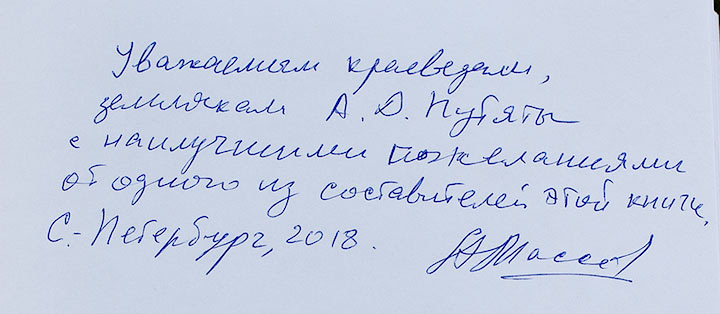 Уважаемым краеведам,
землякам А. Д. Путяты
с наилучшими пожеланиями
от одного из составителей этой книги.
С.-Петербург, 2018.